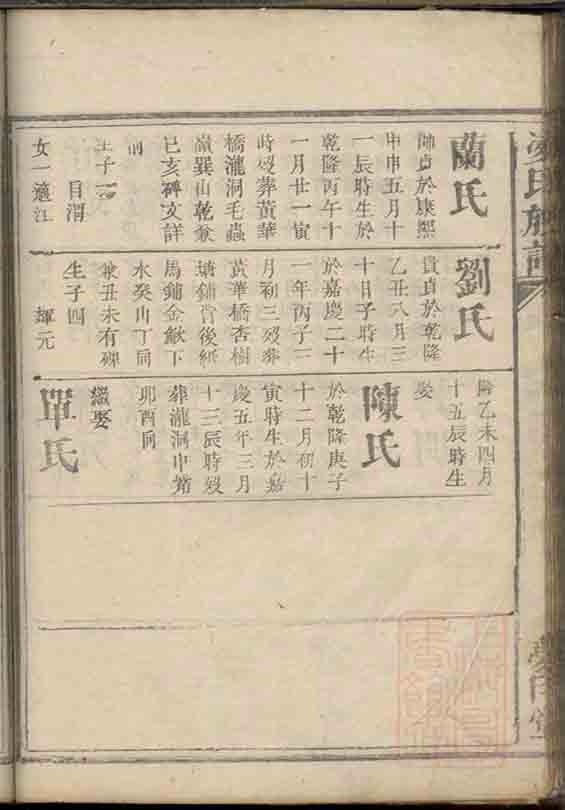 氏族譜
蘭氏
貞於康熙
甲申五月十
一辰時生於
乾隆丙午十
一月廿一寅
時歿葬黃華
橋瀧洞毛蟲
嶺巽山乾兼
已亥碑文詳
前
生子
目渭
女一適江
劉氏
貴貞於乾隆
乙丑八月三
十日子時生
於嘉慶二十
一年丙子三
月初三歿葬
黃華橋杏樹
塘鋪背後紙
馬鋪金鰍下
水癸山丁向
兼丑未有碑
生子四
輝元
隆乙未四月
十五辰時生
娶
陳氏
於乾隆庚子
十二月初十
寅時生於嘉
慶五年三月
十三辰時歿
葬瀧洞申
卯酉向
繼娶
單氏